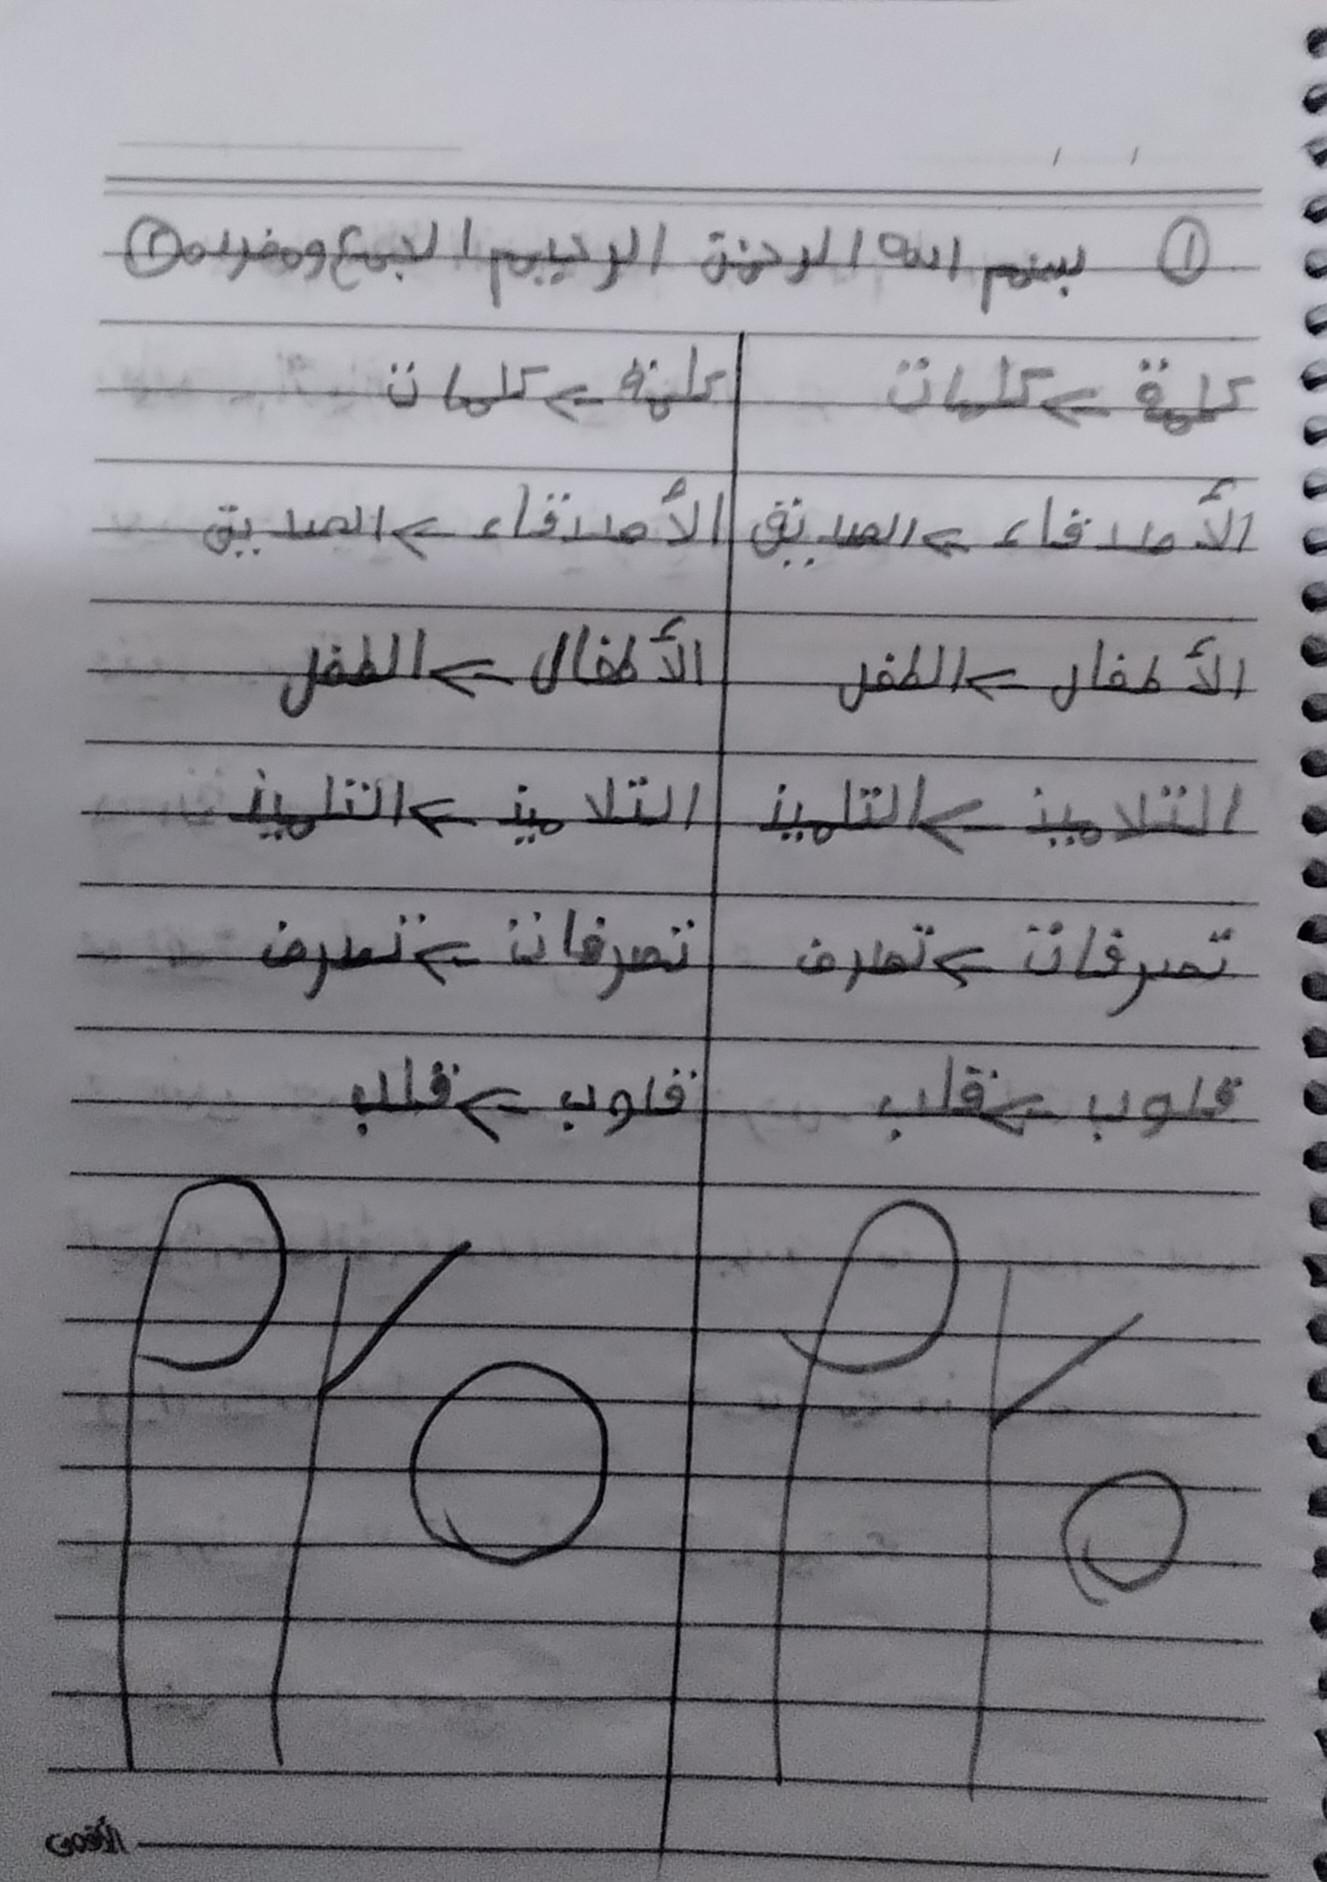 ① بسم الله الرحمن الرحيم الجمع ومفرده ②
كلمة ← كلمات كلمة ← كلمات
الأصدقاء ← الصديق الأصدقاء ← الصديق
الأطفال ← الطفل الأطفال ← الطفل
التلاميذ ← التلميذ التلاميذ ← التلميذ
تصرفات ← تصرف تصرفات ← تصرف
قلوب ← قلب قلوب ← قلب
الأقصى